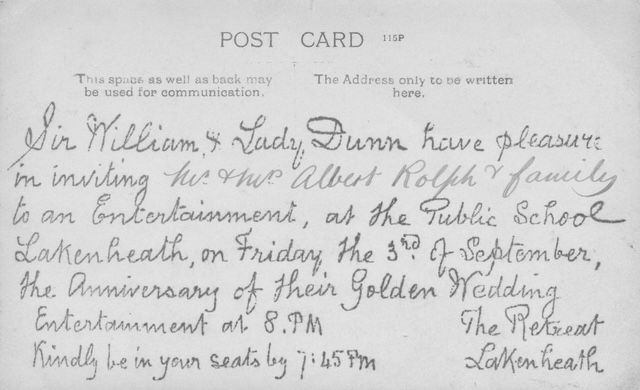 POST CARD 115P
This space as well as back may
be used for communication.
The Address only to be written
here.
Sir William & Lady Dunn have pleasure
in inviting Mr & Mrs Albert Rolph & families
to an Entertainment, at the Public School
Lakenheath, on Friday the 3rd of September,
the Anniversary of their Golden Wedding
Entertainment at 8.PM The Retreat
Kindly be in your seats by 7:45 Pm Lakenheath